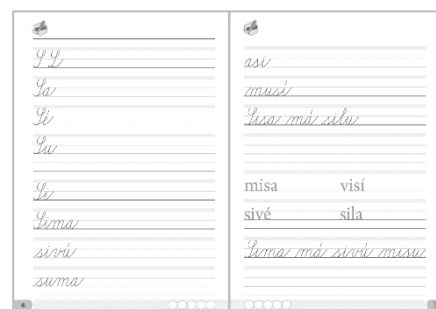 S S
Sa
Sé
Su
Si
Sima
sivú
suma
6
asi
musí
Sisa má silu
misa visí
sivé sila
Sima má sivú misu